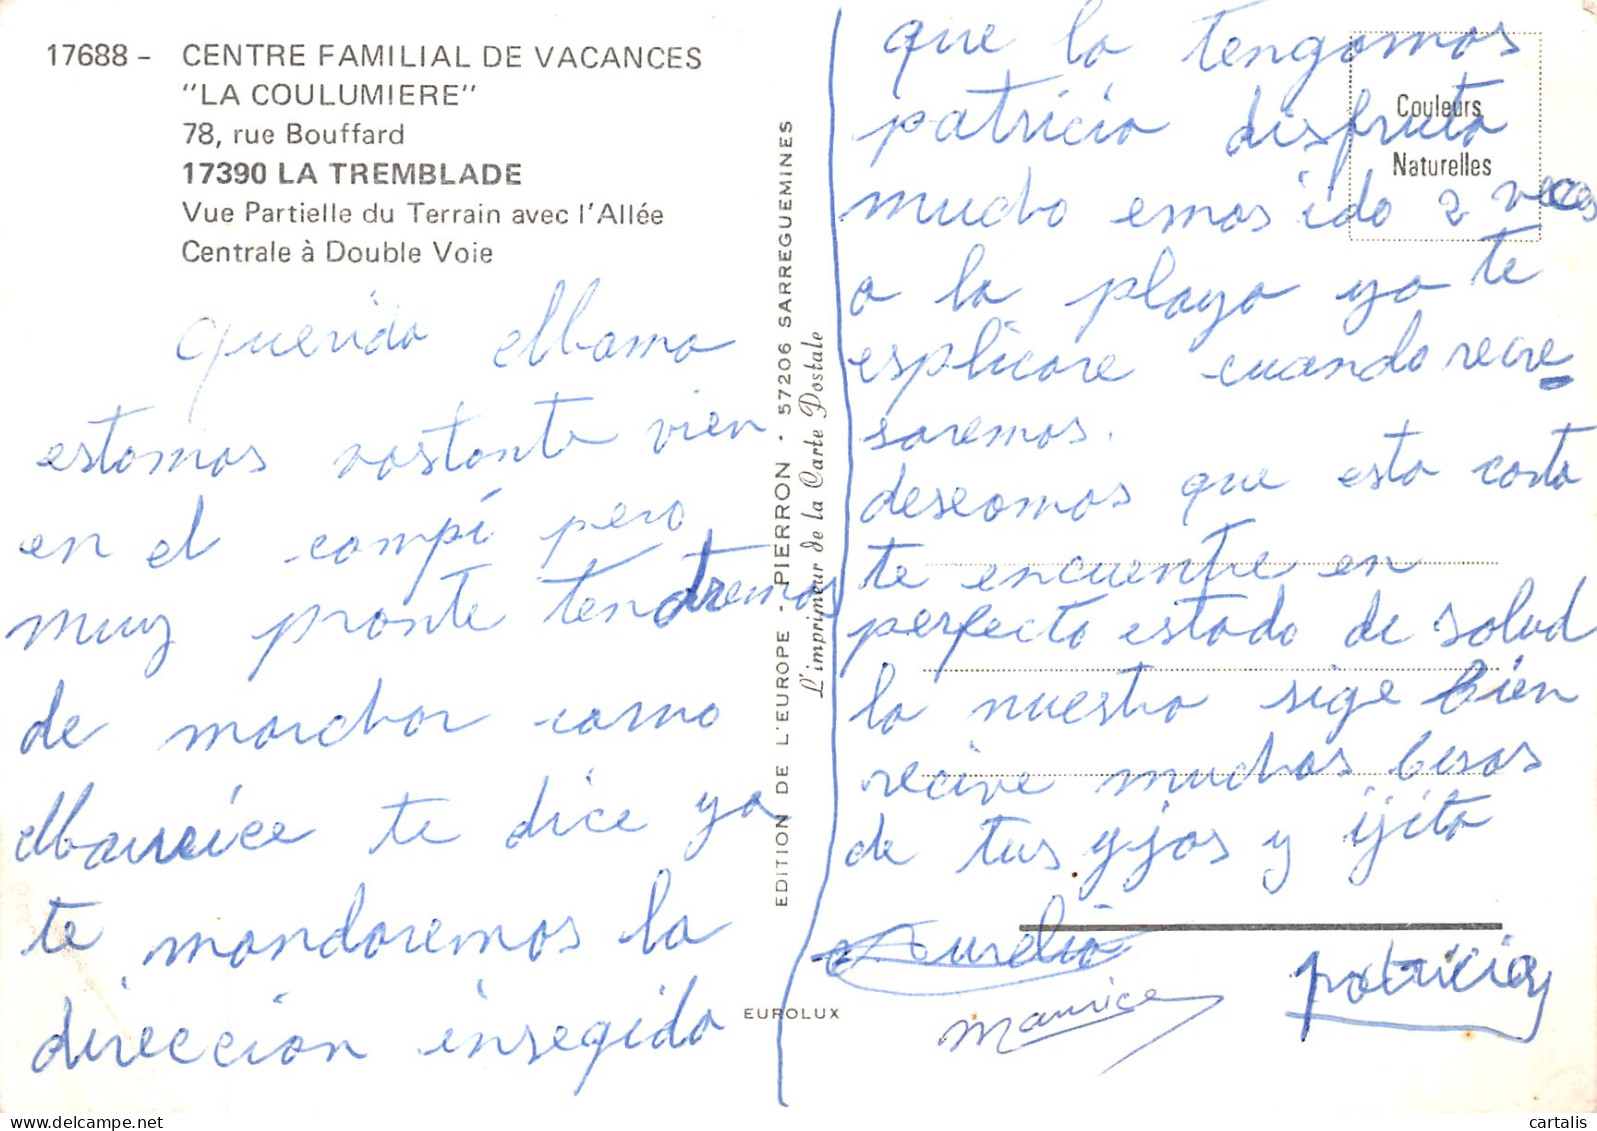 17688 - CENTRE FAMILIAL DE VACANCES
"LA COULUMIERE"
78, rue Bouffard
17390 LA TREMBLADE
Vue Partielle du Terrain avec l'Allée
Centrale à Double Voie
querida Mama
estamos vastante vien
en el campi pero
muy pronte tendremos
de marchar como
Maurice te dice ya
te mandaremos la
direccion insegida
EDITION DE L'EUROPE - PIERRON - 57206 SARREGUEMINES
L'imprimeur de la Carte Postale
EUROLUX
Couleurs
Naturelles
que la tengamos
patricia disfruta
mucho emos ido 2 veces
a la playa ya te
esplicare cuando recre
saremos.
deseamos que esta carta
te encuentre en
perfecto estado de salud
la nuestra sige bien
recive muchos besos
de tus yjos y ijita
Aurelia
Maurice
patricia
cartalis